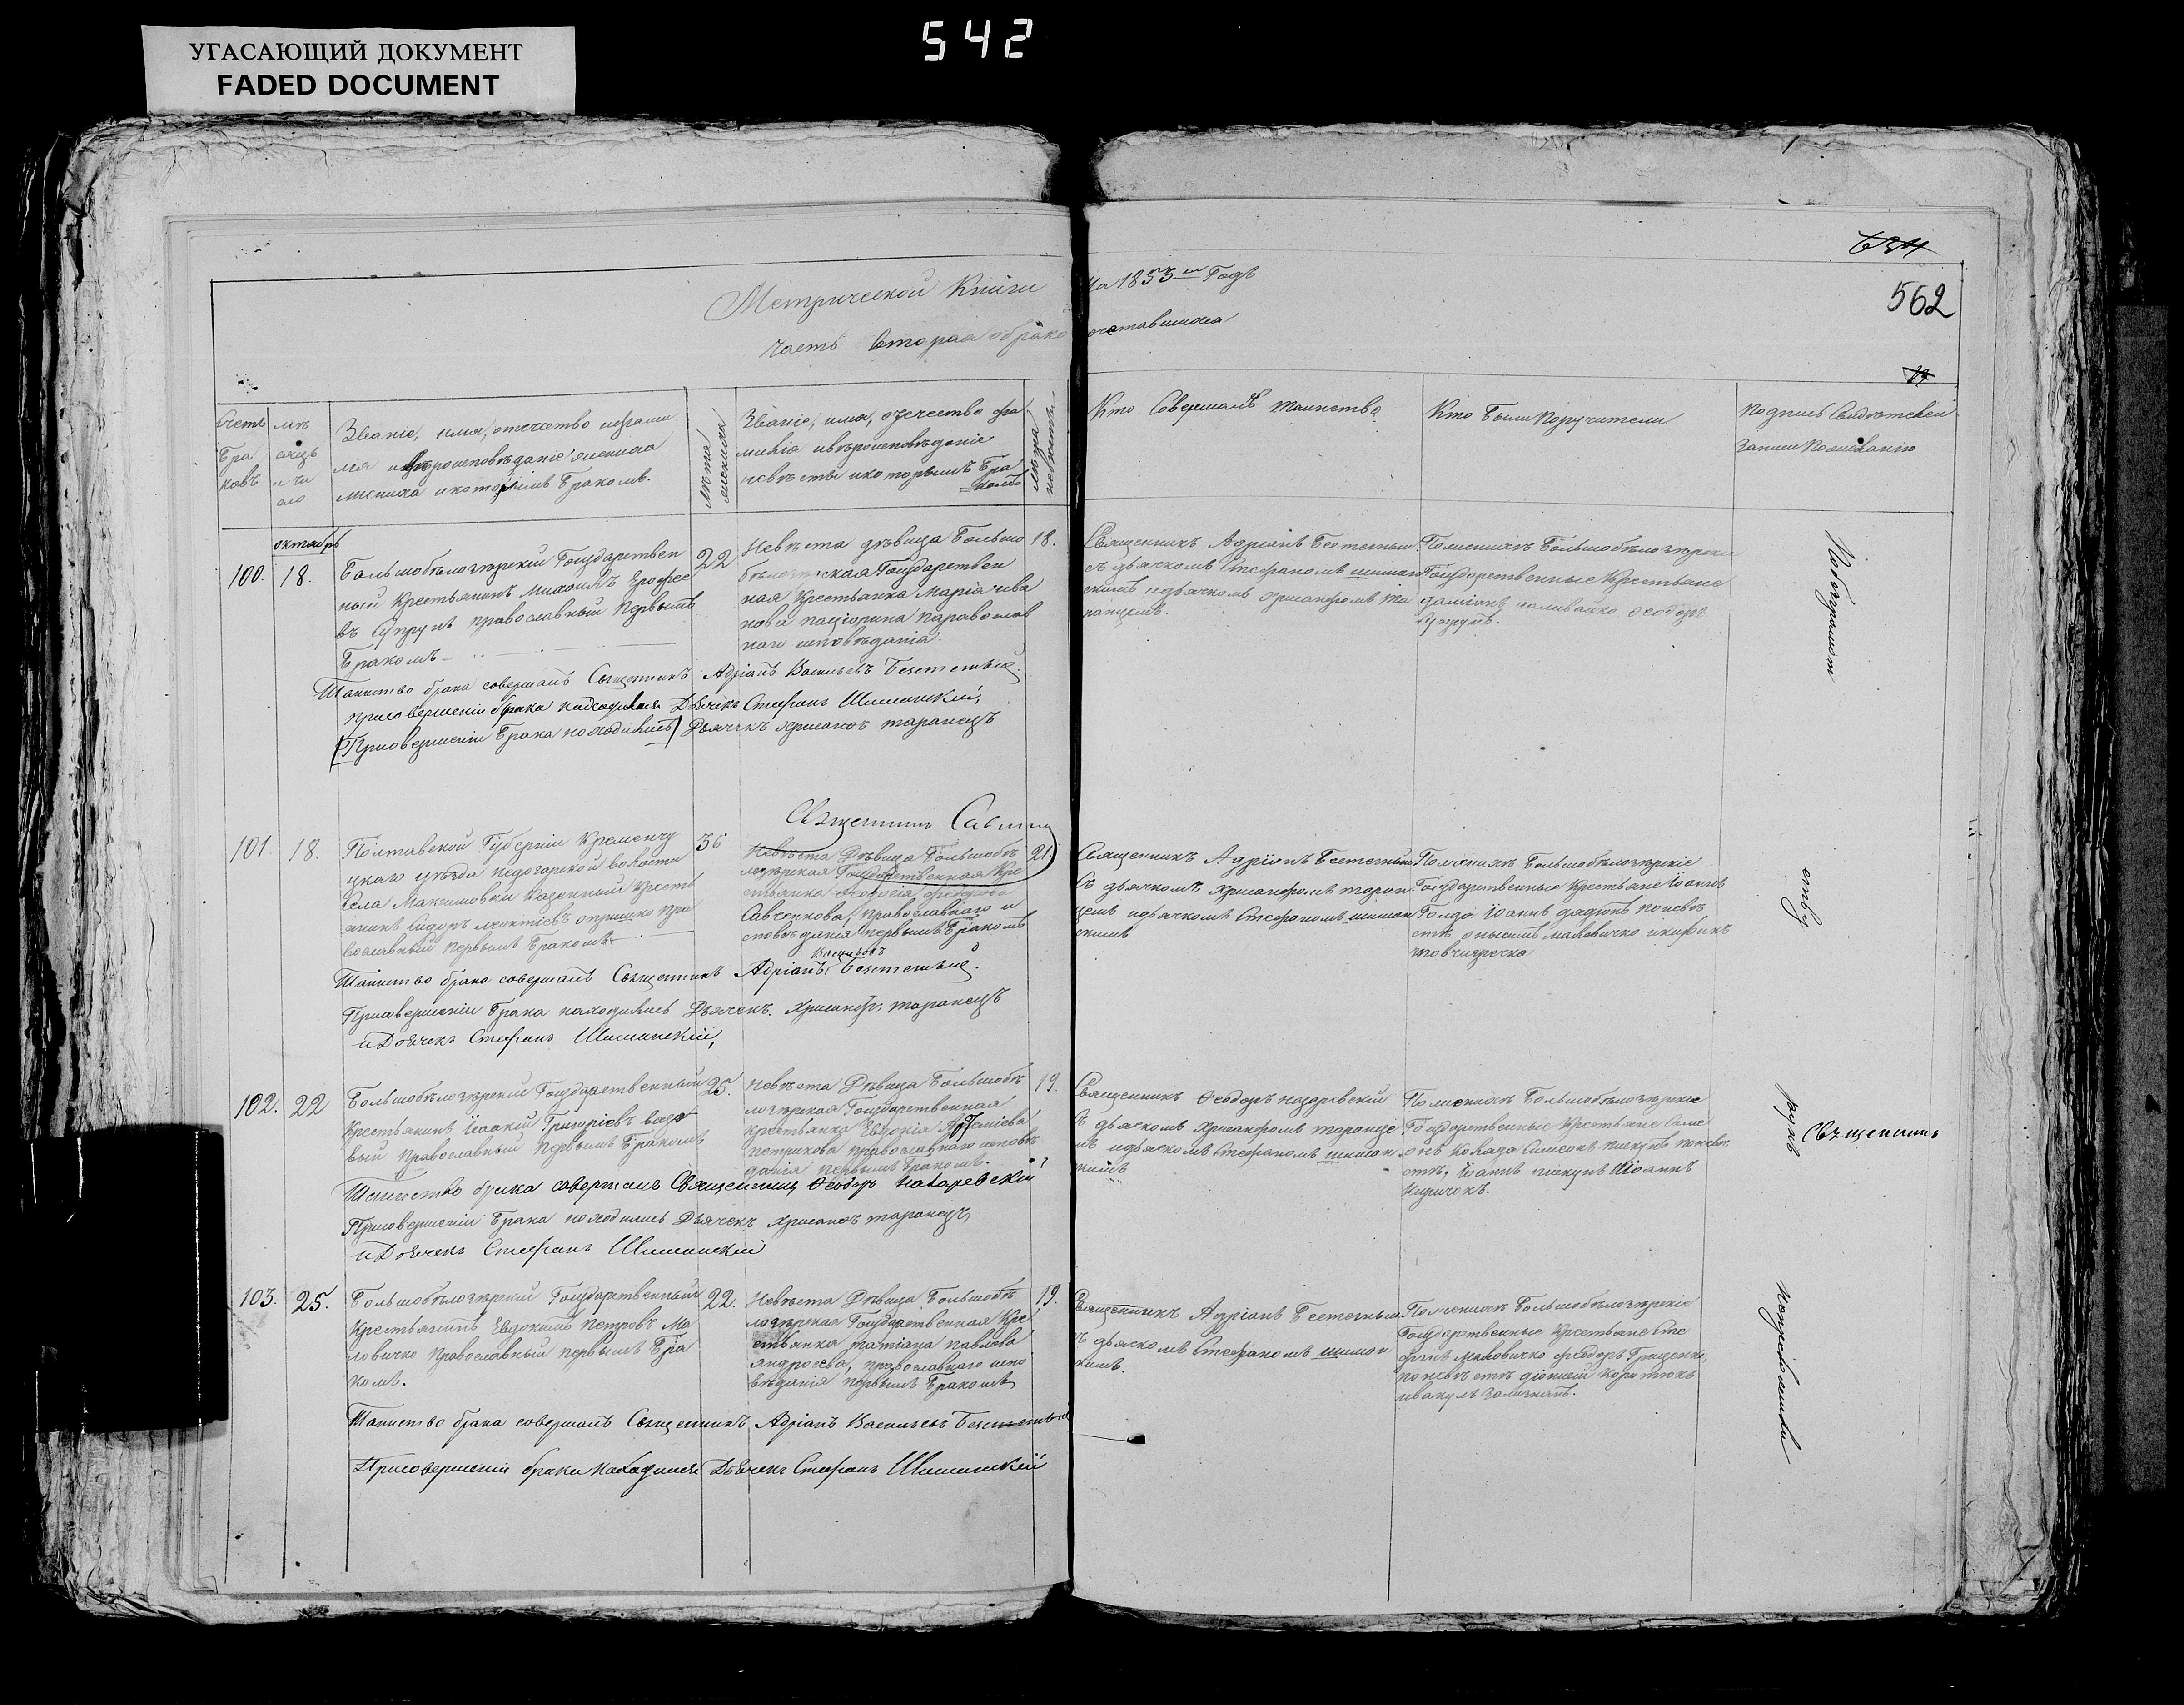 УГАСАЮЩИЙ ДОКУМЕНТ
FADED DOCUMENT
542
Метрической Книги
на 1853 ій Годъ
часть вторая о брако
сочетавшихся
634
562
Счетъ
Бра
ковъ
мѣ
сяцъ
и чи
сло
Званіе, имя, отчество и фами
лія и вѣроисповѣданіе жениха
и которымъ Бракомъ.
лѣта
жениха
Званіе, имя, отчество фа
милія и вѣроисповѣданіе
невѣсты и которымъ Бра
комъ
лѣта
невѣсты
Кто Совершалъ таинство
Кто были Поручители
Подпись Свидѣтелей
Записи По желанію
октябрь
100.
18.
Большобѣлозѣрскій Государствен
ный Крестьянинъ Михаилъ Ерофее
въ Супрунъ православный первымъ
Бракомъ
22
Невѣста дѣвица Большо
бѣлозѣрская Государствен
ная Крестьянка Марія Ива
нова
наго исповѣданія
18.
Священникъ Адріанъ
съ дьячкомъ Стефаномъ Шиман
скимъ и дьячкомъ Хрисанфомъ Та
ранцемъ.
По женихѣ Большобѣлозѣрскіе
Государственные Крестьяне
даміанъ наливайко Ѳеодоръ
Супрунъ.
Таинство брака совершалъ Священникъ Адріанъ Васильевъ
при совершеніи брака находился Дьячекъ Стефанъ Шиманскій,
(При совершеніи Брака находились) Дьячекъ Хрисанѳ таранецъ
Священникъ
101
18.
Полтавской Губерніи Кременчу
цкаго уѣзда волости
Села Максимовки Казенный кресть
янинъ Сидоръ Леонтіевъ опришко пра
вославный первымъ Бракомъ
36
Невѣста Дѣвица Большобѣ
лозѣрская Государственная Кре
стьянка
Савченкова, православнаго и
сповѣданія первымъ Бракомъ
21
Священникъ Адріанъ
съ дьячкомъ Хрисанфомъ таран
цемъ и дьячкомъ Стефаномъ шиман
скимъ
По женихѣ Большобѣлозѣрскіе
Государственные Крестьяне Іоаннъ
Голдо Іоаннъ дядюнъ по невѣ
стѣ маловичко никифиръ
Васильевъ
Таинство брака совершалъ Священникъ Адріанъ
При совершеніи Брака находились Дьячекъ. Хрисанф. таранецъ
и Дьячекъ Стефанъ Шиманскій,
102.
22
Большобѣлозѣрскій Государственный
Крестьянинъ Іоакій Григоріевъ
вый Православный Первымъ Бракомъ
25.
Невѣста Дѣвица Большобѣ
лозѣрская Государственная
Крестьянка Евдокія Артеміева
петрикова православнаго исповѣ
данія первымъ Бракомъ.
19.
Священникъ Ѳеодоръ назаревскій
съ дьячкомъ Хрисанфомъ таранце
мъ и дьячкомъ Стефаномъ шиман
скимъ
По женихѣ Большобѣлозѣрскіе
Государственные Крестьяне Симе
онъ Коляда Симеонъ пикунъ по невѣ
стѣ, Іоаннъ пикунъ Іоаннъ
Киричокъ.
Таинство брака совершалъ Священникъ Ѳеодоръ Назаревскій
При совершеніи Брака находились Дьячекъ Хрисанѳ таранецъ
и Дьячекъ Стефанъ Шиманскій
103.
25.
Большобѣлозѣрскій Государственный
Крестьянинъ Евдокимъ Петровъ Ма
ловичко Православный первымъ Бра
комъ.
22.
Невѣста Дѣвица Большобѣ
лозѣрская Государственная Кре
стьянка татіана павлова
андросова, православнаго испо
вѣданія первымъ Бракомъ
19.
Священникъ Адріанъ
съ дьячкомъ Стефаномъ шиман
скимъ.
По женихѣ Большобѣлозѣрскіе
Государственные Крестьяне Сте
фанъ маловичко Ѳеодоръ Грищенко,
по невѣстѣ діонисій Коротюкъ
Таинство брака совершалъ Священникъ Адріанъ Васильевъ
При совершеніи брака находился Дьячекъ Стефанъ Шиманскій
Священникъ